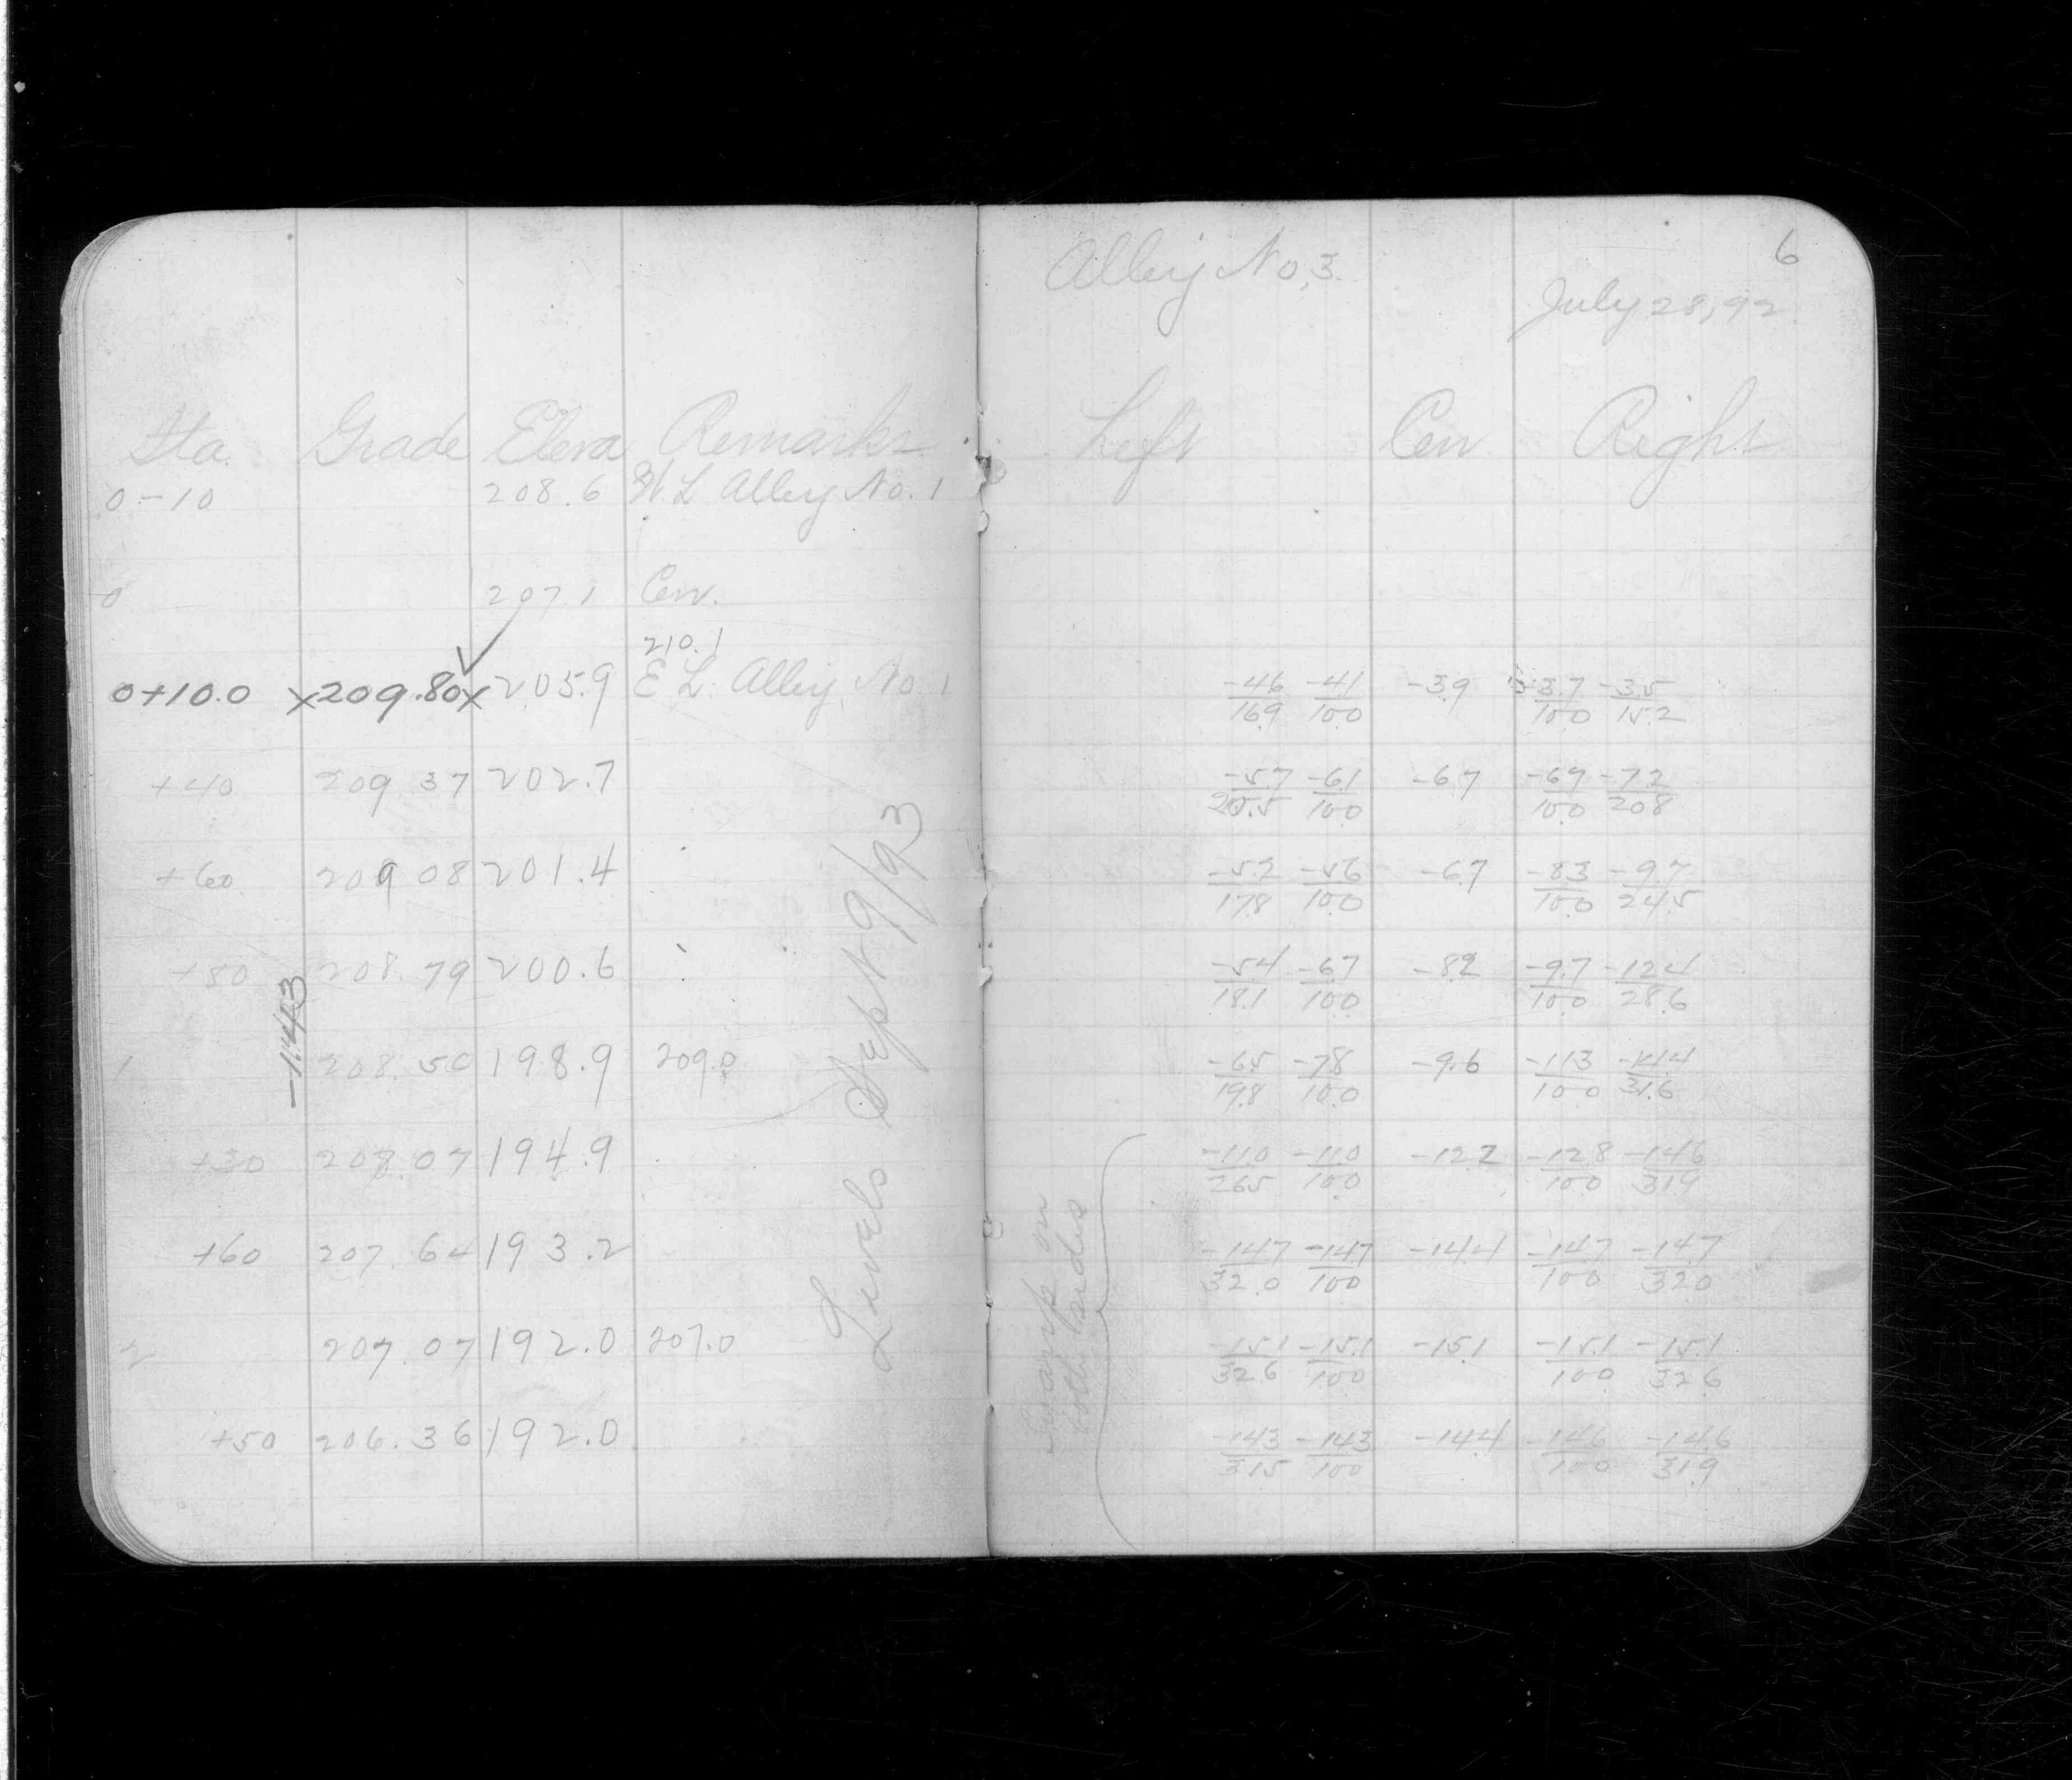 Alley No. 3.
6
July 28, 92
Sta. Grade Eleva Remarks Left Cen Right
0-10 208.6 W L Alley No. 1
0 207.1 Cen.
210.1
0+10.0 x209.80x 205.9 E L Alley No. 1 -4.6/16.9 -4.1/10.0 -3.9 -3.7/10.0 -3.5/15.2
+40 209.37 202.7 -5.7/20.5 -6.1/10.0 -6.7 -6.9/10.0 -7.2/20.8
+60 209.08 201.4 -5.2/17.8 -5.6/10.0 -6.7 -8.3/10.0 -9.7/24.5
+80 208.79 200.6 -5.4/18.1 -6.7/10.0 -8.2 -9.7/10.0 -12.4/28.6
-1.43
1 208.50 198.9 209.0 -6.5/19.8 -7.8/10.0 -9.6 -11.3/10.0 -14.4/31.6
+30 207.07 194.9 -11.0/26.5 -11.0/10.0 -12.2 -12.8/10.0 -14.6/31.9
+60 207.64 193.2 -14.7/32.0 -14.7/10.0 -14.4 -14.7/10.0 -14.7/32.0
2 207.07 192.0 207.0 -15.1/32.6 -15.1/10.0 -15.1 -15.1/10.0 -15.1/32.6
+50 206.36 192.0 -14.3/31.5 -14.3/10.0 -14.4 -14.6/10.0 -14.6/31.9
Levels Sept 9/93
Swamp on
both sides